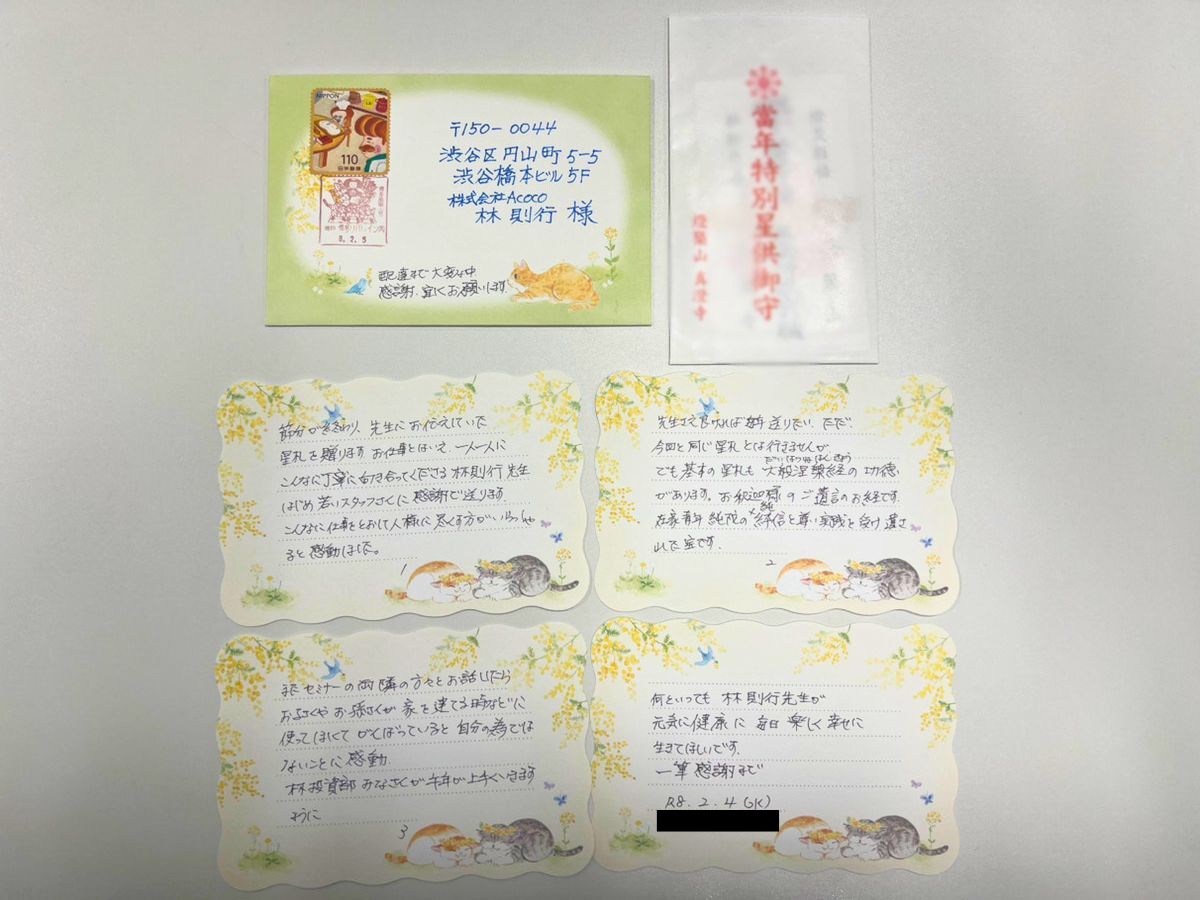 NIPPON
110
日本郵便
8.2.5
〒150-0044
渋谷区円山町5-5
渋谷橋本ビル5F
株式会社Acoco
林 則行 様
配達まで大変な中
感謝、宜しくお願いします
當年特別星供御守
燈築山 真澄寺
節分が終わり、先生にお伝えしていた
星札を贈ります お仕事とはいえ、一人一人に
こんなに丁寧に向き合ってくださる林則行先生
はじめ若いスタッフさんに感謝で送ります
こんなに仕事をとおして人様に尽くす方がいらっしゃ
ると感動しました。
1
先生さえ良ければ毎年送りたい、ただ
今回と同じ星札とは行きませんが
でも基本の星札も大般涅槃経の功徳
があります。お釈迦様のご遺言のお経です。
在家青年 純院の純信と尊い実践を受け遺さ
れた宝です。
2
またセミナーの両隣の方々とお話したら
お子さんやお孫さんが家を建てる時などに
使ってほしくてがんばっていると自分の為では
ないことに感動
林投資部みなさんが午年が上手くいきます
ように
3
何といっても 林則行先生が
元気に健康に毎日楽しく幸せに
生きてほしいです。
一筆感謝まで
R8.2.4(水)